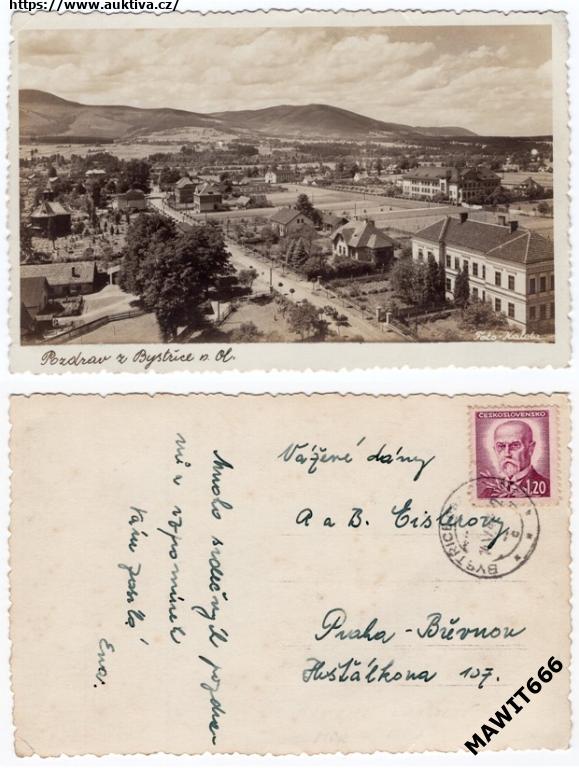 https://www.auktiva.cz/
Foto-
Pozdrav z Bystřice n. Ol.
ČESKOSLOVENSKO
1.20
BYSTŘICE
Vážené dámy
A a B. Eislerovy
Praha - Břevnov
Hošťálkova 107.
Mnoho srdečných pozdra-
vů a vzpomínek
Vám posílá
Ena.
MAWIT666